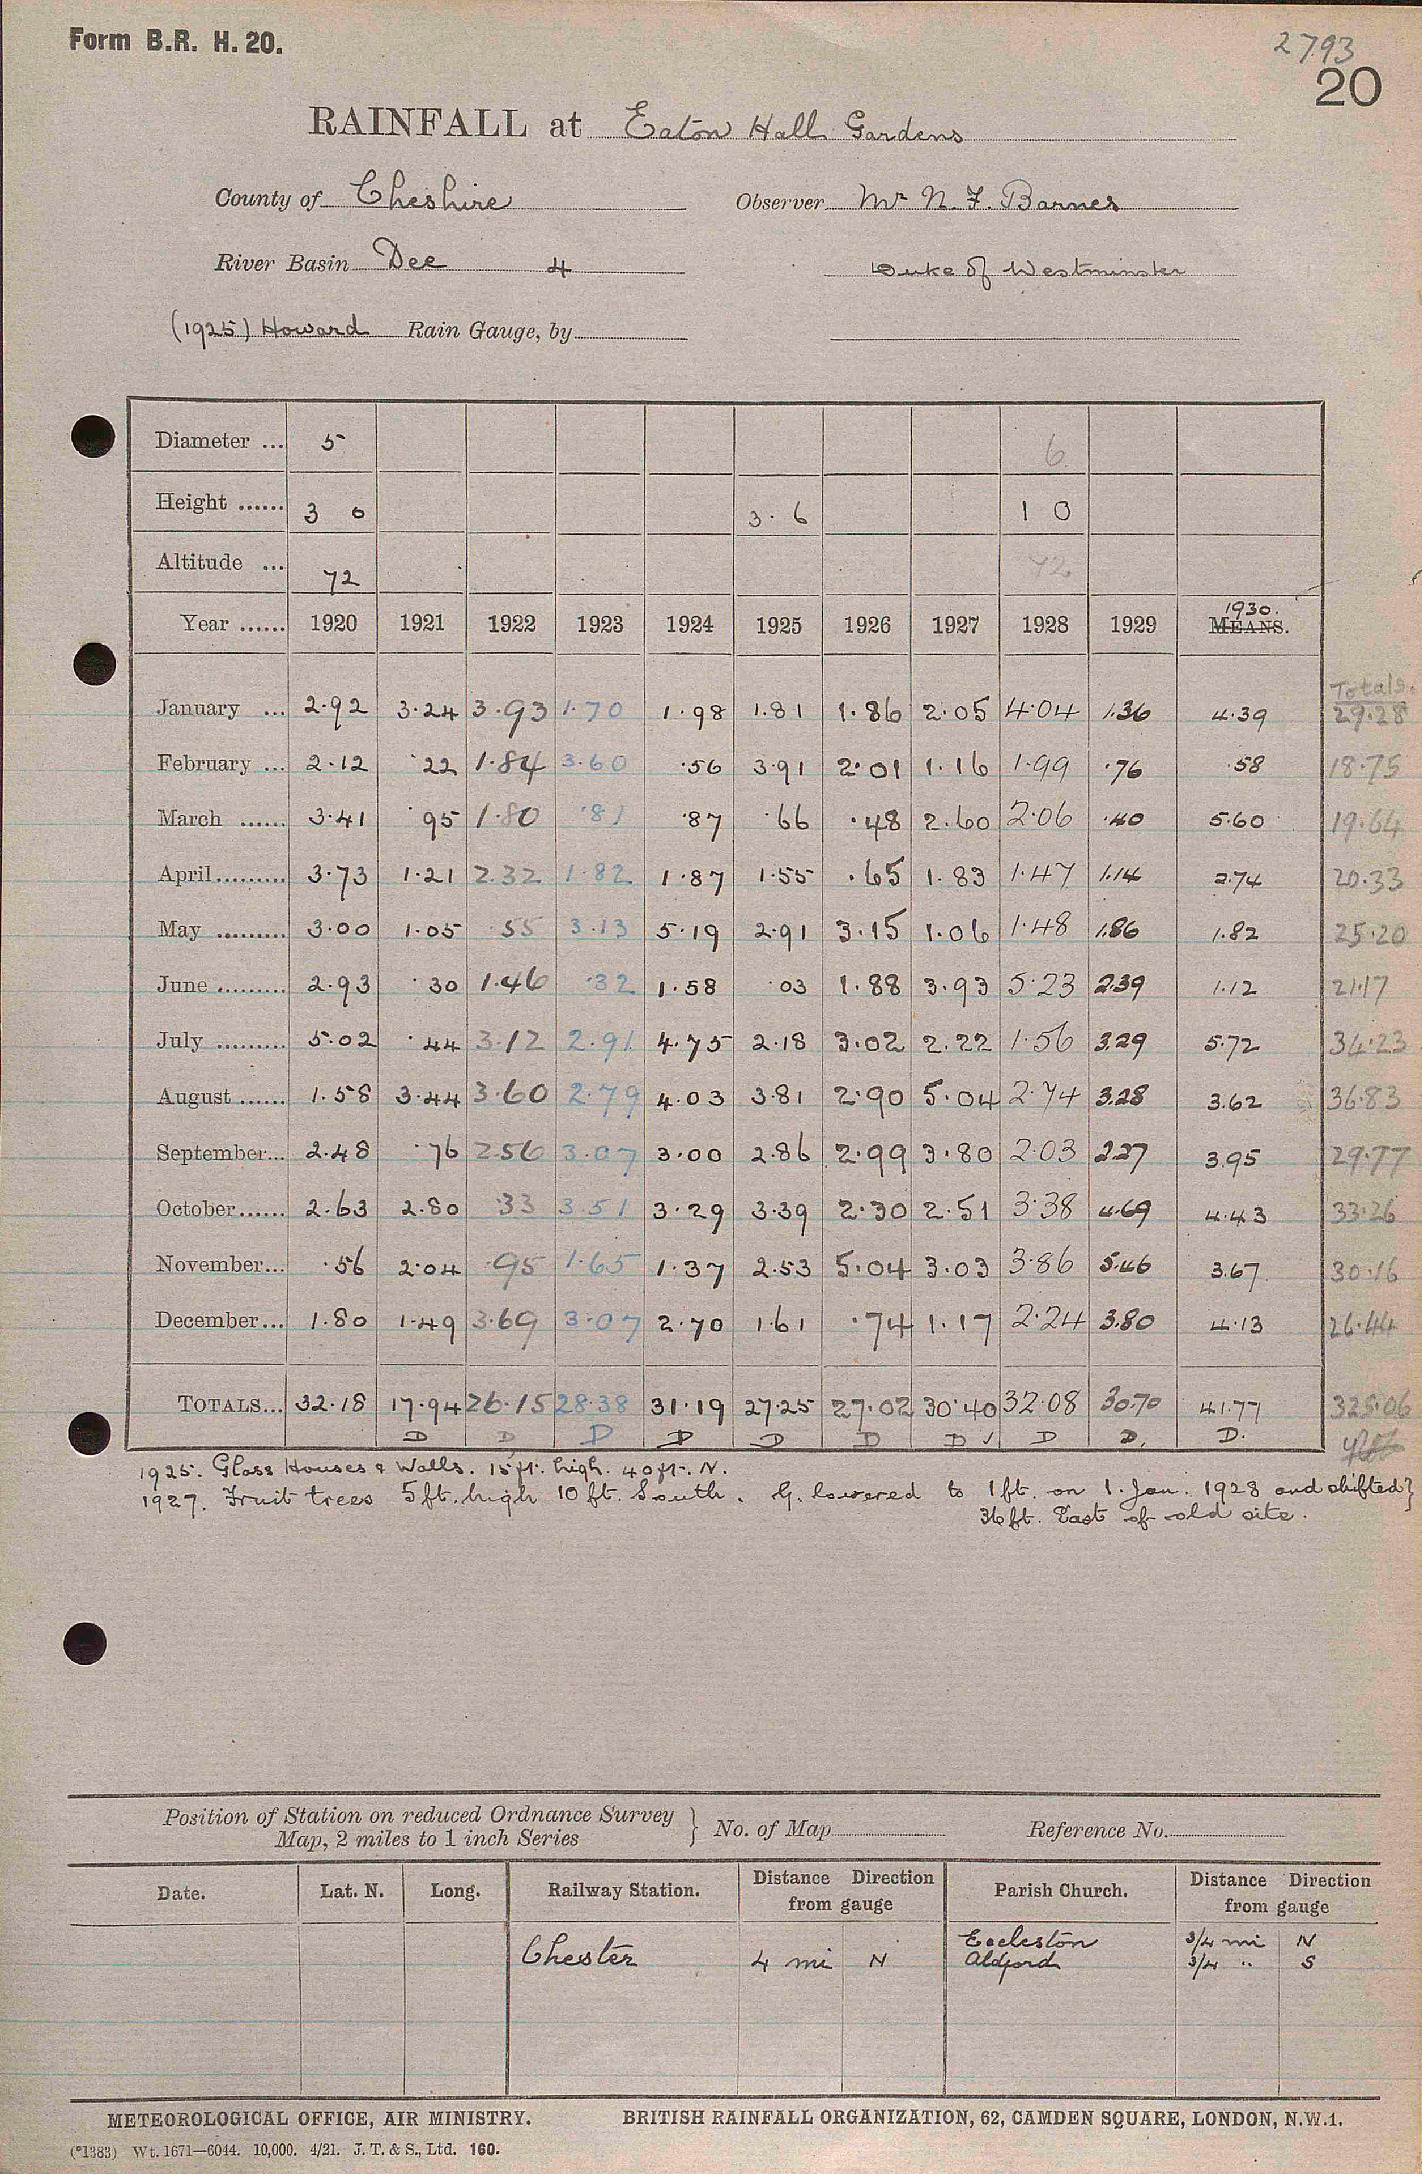 Form B.R. H. 20.
2793
20
RAINFALL at Eaton Hall Gardens
County of Cheshire Observer Mr N. F. Barnes
River Basin Dee 4 Duke of Westminster
(1925) Howard Rain Gauge, by
Diameter ... 5 6
Height ...... 3 0 3. 6 1 0
Altitude ... 72 72
1930.
Year ...... 1920 1921 1922 1923 1924 1925 1926 1927 1928 1929 MEANS.
Totals.
January ... 2.92 3.24 3.93 1.70 1.98 1.81 1.86 2.05 4.04 1.36 4.39 29.28
February ... 2.12 .22 1.84 3.60 .56 3.91 2.01 1.16 1.99 .76 .58 18.75
March ...... 3.41 .95 1.80 .81 .87 .66 .48 2.60 2.06 .40 5.60 19.64
April......... 3.73 1.21 2.32 1.82 1.87 1.55 .65 1.83 1.47 1.14 2.74 20.33
May ......... 3.00 1.05 .55 3.13 5.19 2.91 3.15 1.06 1.48 1.86 1.82 25.20
June ......... 2.93 .30 1.46 .32 1.58 .03 1.88 3.93 5.23 2.39 1.12 21.17
July ......... 5.02 .44 3.12 2.91 4.75 2.18 3.02 2.22 1.56 3.29 5.72 34.23
August ...... 1.58 3.44 3.60 2.79 4.03 3.81 2.90 5.04 2.74 3.28 3.62 36.83
September... 2.48 .76 2.56 3.07 3.00 2.86 2.99 3.80 2.03 2.27 3.95 29.77
October...... 2.63 2.80 .33 3.51 3.29 3.39 2.30 2.51 3.38 4.69 4.43 33.26
November... .56 2.04 .95 1.65 1.37 2.53 5.04 3.03 3.86 5.46 3.67 30.16
December... 1.80 1.49 3.69 3.07 2.70 1.61 .74 1.17 2.24 3.80 4.13 26.44
TOTALS... 32.18 17.94 26.15 28.38 31.19 27.25 27.02 30.40 32.08 30.70 41.77 325.06
D D D D D D D ✓ D D. D.
1925. Glass Houses & Walls. 15 ft. high. 40 ft. N.
1927. Fruit trees 5 ft. high 10 ft. South. G. lowered to 1 ft. on 1. Jan. 1928 and shifted }
36 ft. East of old site.
Position of Station on reduced Ordnance Survey
Map, 2 miles to 1 inch Series } No. of Map Reference No.
Date. Lat. N. Long. Railway Station. Distance Direction from gauge Parish Church. Distance Direction from gauge
Chester 4 mi N Eccleston 3/4 mi N
Aldford 3/4 " S
METEOROLOGICAL OFFICE, AIR MINISTRY. BRITISH RAINFALL ORGANIZATION, 62, CAMDEN SQUARE, LONDON, N.W.1.
(*1383) Wt. 1671—6044. 10,000. 4/21. J. T. & S., Ltd. 160.